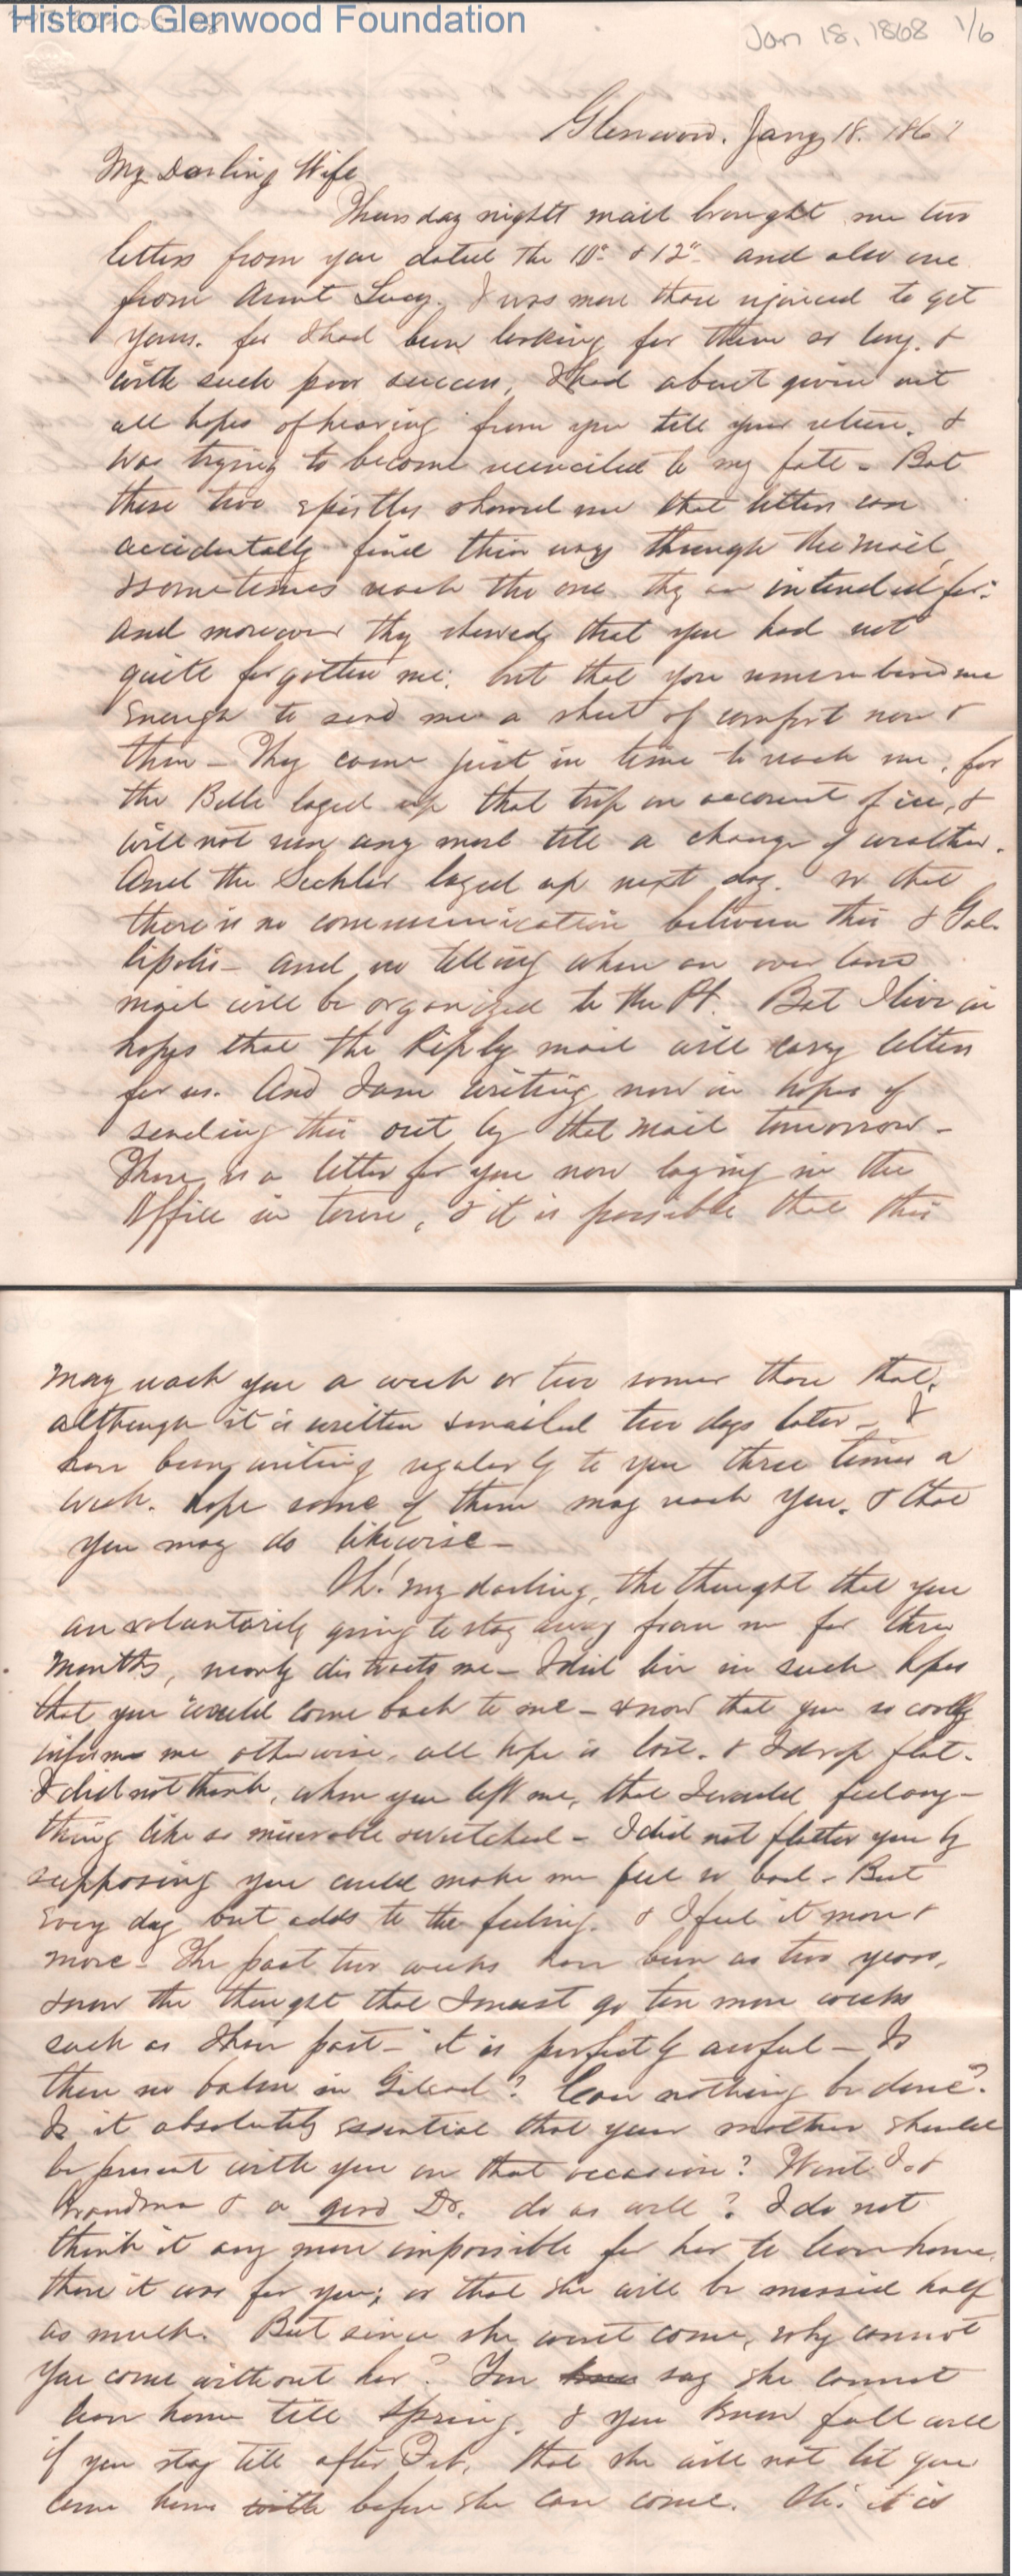 Historic Glenwood Foundation
Jan 18, 1868 1/6
Glenwood. Jany 18. 186
My Darling Wife
Thursday nights mail brought me two
letters from you dated the 10" & 12" and also one
from Aunt Lucy. I was more than rejoiced to get
yours. for I had been looking for them so long. &
with such poor success, I had about given out
all hopes of hearing from you till your return. &
was trying to become reconciled to my fate - But
these two epistles showed me that letters can
accidentally find their way through the mail
& sometimes reach the one they are intended for:
and moreover they showed that you had not
quite forgotten me: but that you remembered me
Enough to send me a sheet of comfort now &
then - They came just in time to reach me, for
the Belle layed up that trip on account of ice, &
will not run any more till a change of weather.
And the Sechler layed up next day. so that
there is no communication between this & Gal-
lipolis - and no telling when an over land
mail will be organized to the Pt. But I live in
hopes that the Ripley mail will carry letters
for us. And I am writing now in hopes of
sending this out by that mail tomorrow -
There is a letter for you now laying in the
Office in town, & it is possible that this
may reach you a week or two sooner than that,
although it is written & mailed two days later - I
have been writing regularly to you three times a
week. hope some of them may reach you. & that
you may do likewise -
Oh! my darling, the thought that you
are voluntarily going to stay away from me for three
months, nearly distracts me - I did live in such hopes
that you would come back to me - & now that you so coolly
inform me otherwise, all hope is lost. & I drop flat.
I did not think, when you left me, that I would feel any-
thing like so miserable & wretched - I did not flatter you by
supposing you could make me feel so bad - But
Every day but adds to the feeling. & I feel it more &
more - The past two weeks have been as two years,
& now the thought that I must go ten more weeks
such as I have past - it is perfectly awful - Is
there no balm in Gilead? Can nothing be done?
Is it absolutely essential that your mother should
be present with you on that occasion? Wont I. &
Grandma & a good Dr. do as well? I do not
think it any more impossible for her to leave home
than it was for you; or that she will be missed half
as much. But since she wont come, why cannot
you come without her? You say she cannot
leave home till Spring. & you know full well
if you stay till after Feb. that she will not let you
come home with before she can come. Oh! it is